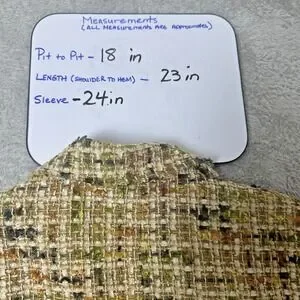 Measurements
(ALL MEASUREMENTS ARE APPROXIMATES)
Pit to Pit - 18 in
LENGTH (SHOULDER TO HEM) - 23 in
Sleeve - 24in